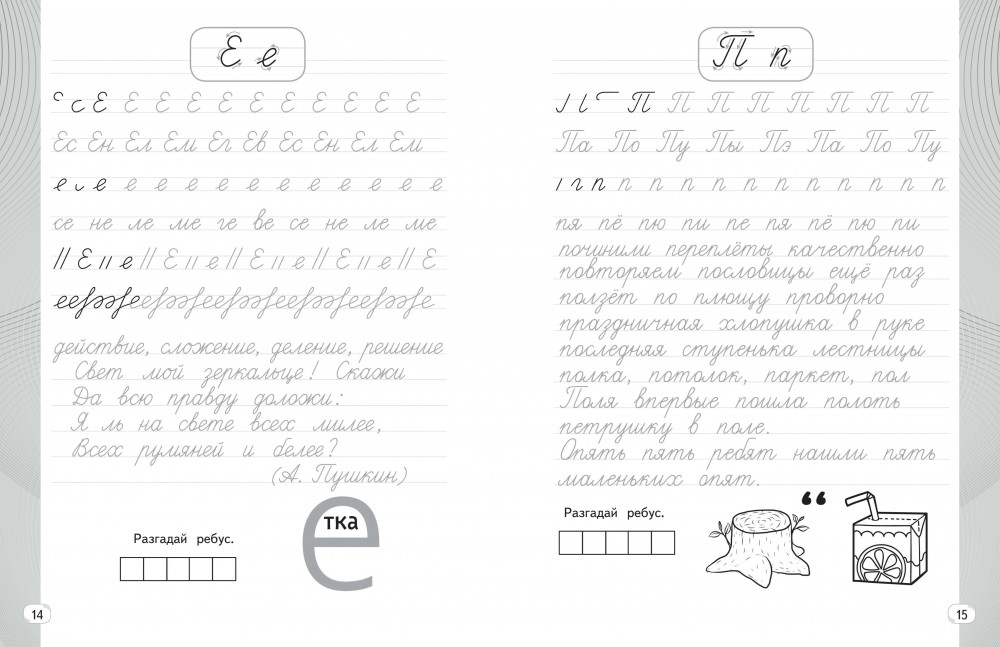 Е е
с с Е Е Е Е Е Е Е Е Е Е Е Е
Ес Ен Ел Ем Ег Ев Ес Ен Ел Ем
е е е е е е е е е е е е е
се не ле ме ге ве се не ле ме
Е е Е е Е е Е е Е
действие, сложение, деление, решение
Свет мой зеркальце! Скажи
Да всю правду доложи:
Я ль на свете всех милее,
Всех румяней и белее?
(А. Пушкин)
Разгадай ребус.
е
тка
14
П п
П П П П П П П П
Па По Пу Пы Пэ Па По Пу
п п п п п п п п п п п п
пя пё пю пи пе пя пё пю пи
починили переплёты качественно
повторяем пословицы ещё раз
ползёт по плющу проворно
праздничная хлопушка в руке
последняя ступенька лестницы
полка, потолок, паркет, пол
Поля впервые пошла полоть
петрушку в поле.
Опять пять ребят нашли пять
маленьких опят.
Разгадай ребус.
“
15